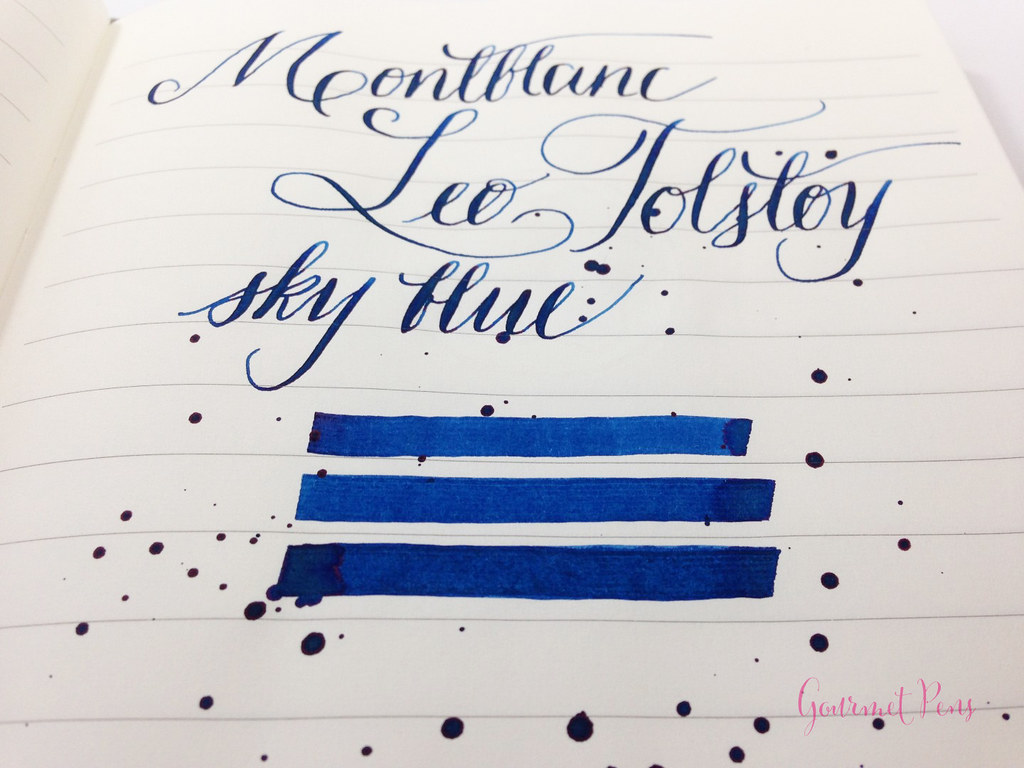 Montblanc
Leo Tolstoy
sky blue
Gourmet Pens